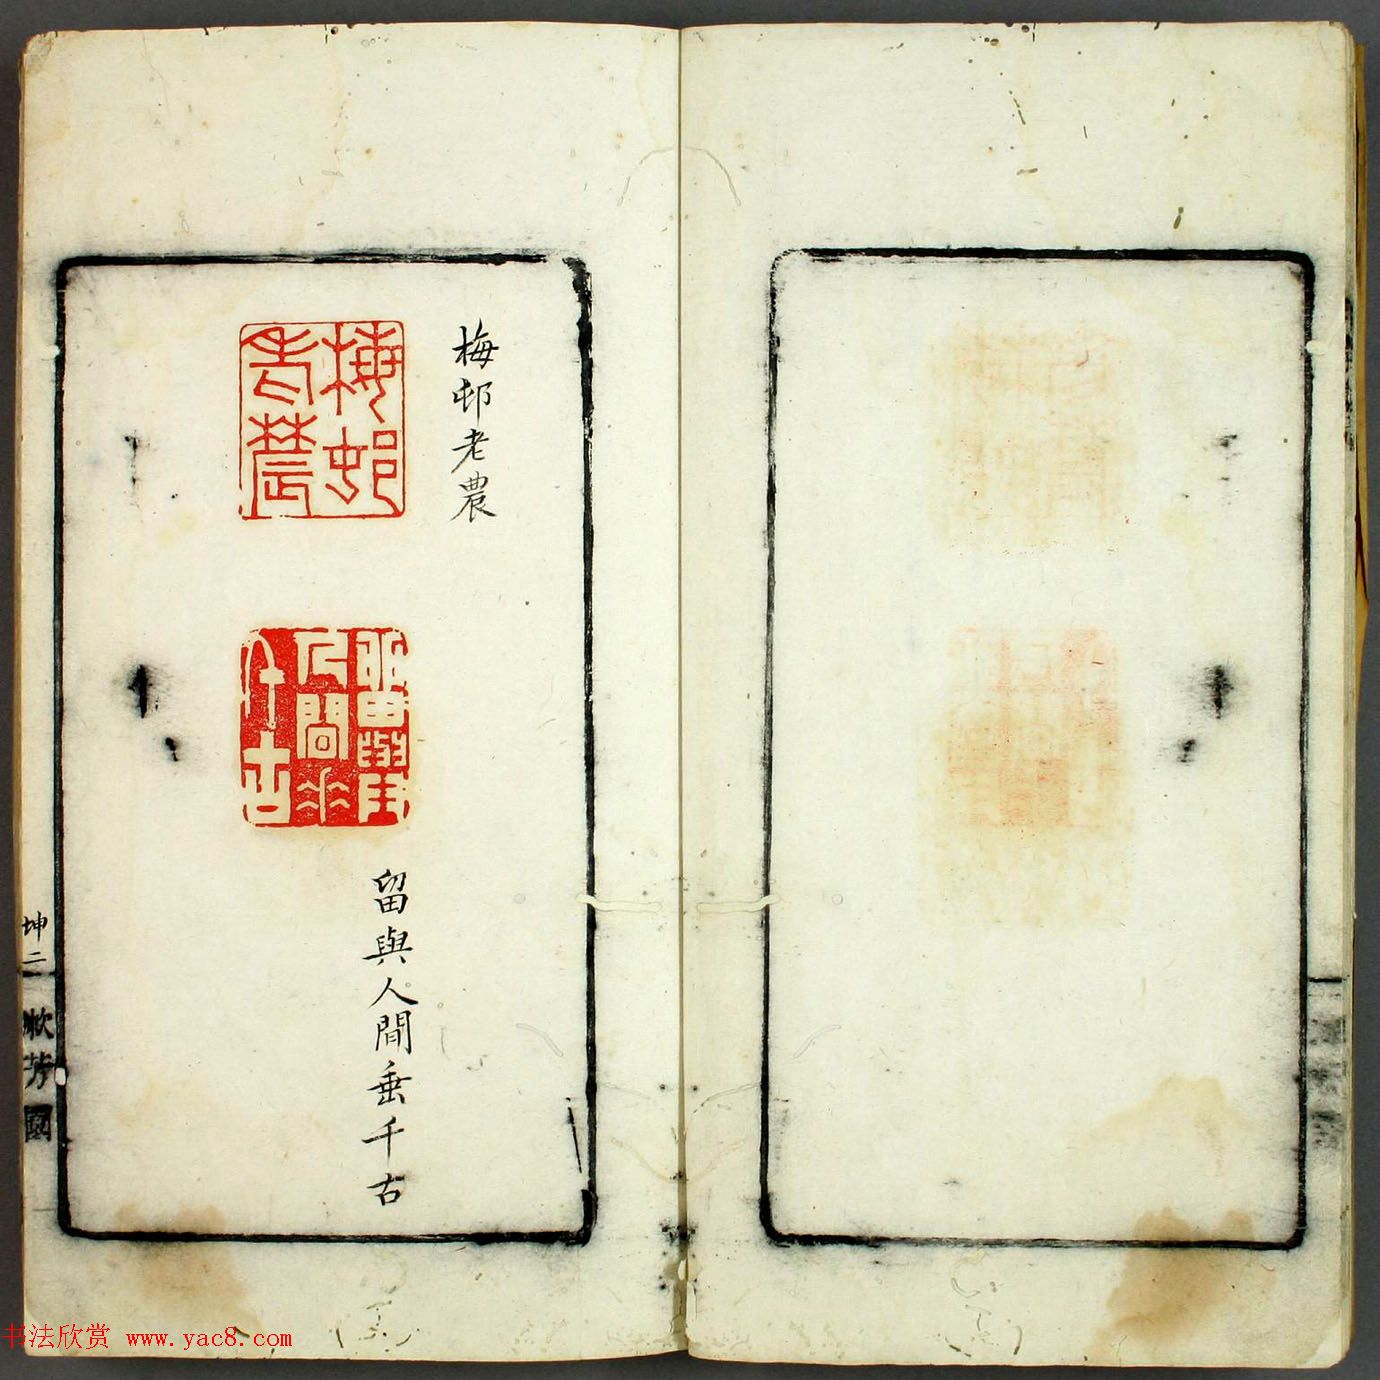 梅邨老農
梅邨老農
留與人間垂千古
留與人間垂千古
坤二
漱芳園
书法欣赏 www.yac8.com